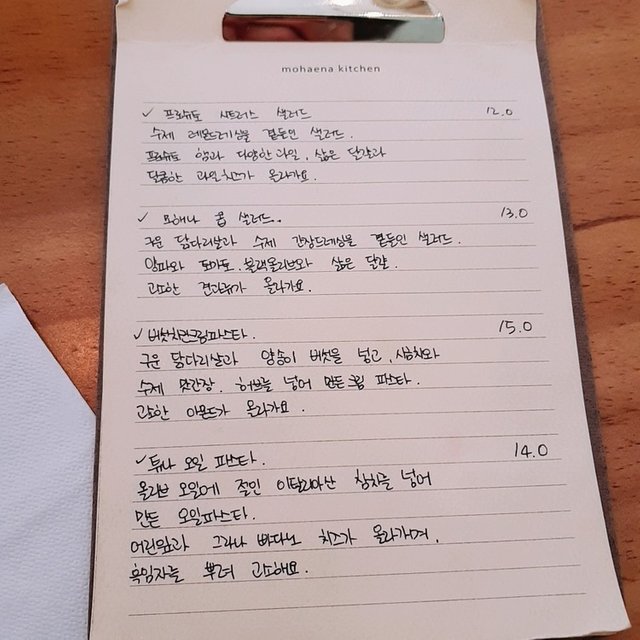 mohaena kitchen
✓ 프로슈토 시트러스 샐러드 12.0
수제 레몬드레싱을 곁들인 샐러드.
프로슈토 햄과 다양한 과일, 삶은 달걀과
달콤한 과일치즈가 올라가요.
✓ 모해나 콥 샐러드.. 13.0
구운 닭다리살과 수제 간장드레싱을 곁들인 샐러드.
양파와 토마토, 블랙올리브와 삶은 달걀.
고소한 견과류가 올라가요.
✓ 버섯치킨크림파스타. 15.0
구운 닭다리살과 양송이 버섯을 넣고,
수제 맛간장, 허브를 넣어 만든 크림 파스타.
고소한 아몬드가 올라가요.
✓ 튜나 오일 파스타. 14.0
올리브 오일에 절인 이탈리아산 참치를 넣어
만든 오일파스타.
어린잎과 그라나 빠다노 치즈가 올라가며,
흑임자를 뿌려 고소해요.